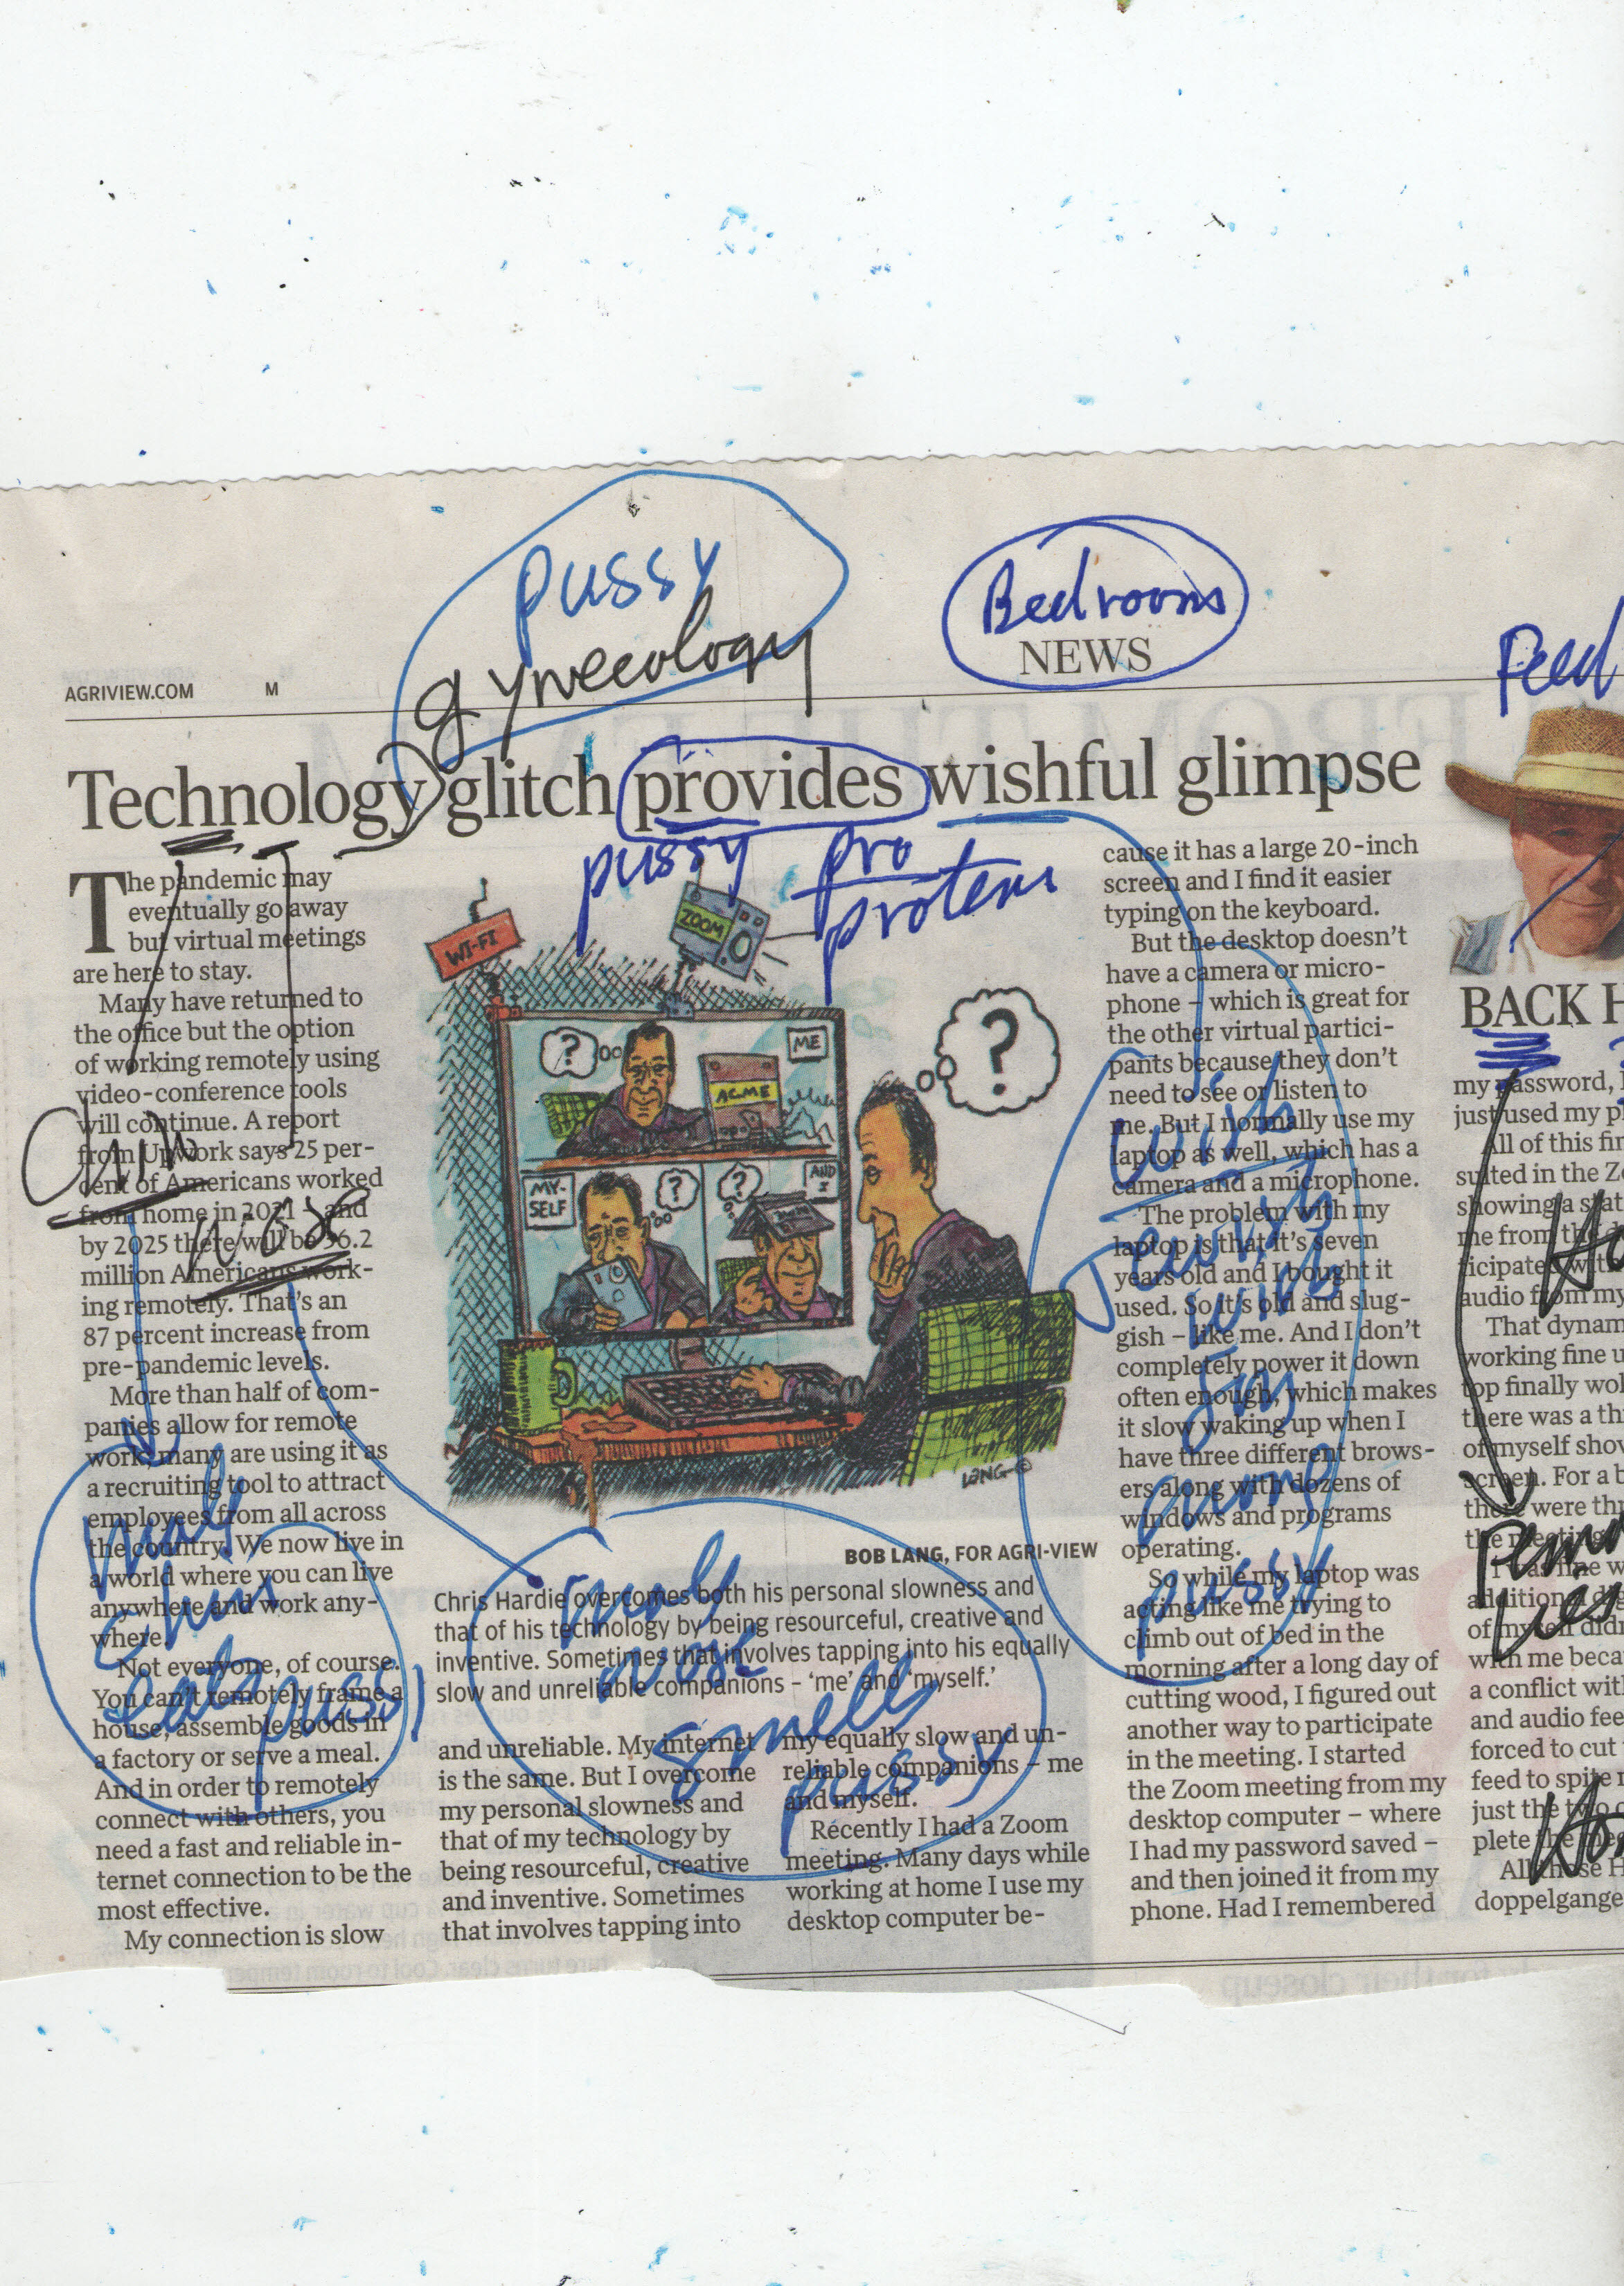 pussy
gynecology
Bedrooms
NEWS
Feed
AGRIVIEW.COM M
Technology glitch provides wishful glimpse
pussy pro
proteins
The pandemic may
eventually go away
but virtual meetings
are here to stay.
Many have returned to
the office but the option
of working remotely using
video-conference tools
will continue. A report
from Upwork says 25 per-
cent of Americans worked
from home in 2021 – and
by 2025 there will be 36.2
million Americans work-
ing remotely. That's an
87 percent increase from
pre-pandemic levels.
More than half of com-
panies allow for remote
work; many are using it as
a recruiting tool to attract
employees from all across
the country. We now live in
a world where you can live
anywhere and work any-
where.
Not everyone, of course.
You can't remotely frame a
house, assemble goods in
a factory or serve a meal.
And in order to remotely
connect with others, you
need a fast and reliable in-
ternet connection to be the
most effective.
My connection is slow
Chin
nose
male
chins
eats
pussy
WI-FI
ZOOM
ME
ACME
MY-
SELF
AND
I
?
?
?
?
LANG ©
BOB LANG, FOR AGRI-VIEW
Chris Hardie overcomes both his personal slowness and
that of his technology by being resourceful, creative and
inventive. Sometimes that involves tapping into his equally
slow and unreliable companions – 'me' and 'myself.'
male
nose
smells
pussy
and unreliable. My internet
is the same. But I overcome
my personal slowness and
that of my technology by
being resourceful, creative
and inventive. Sometimes
that involves tapping into
my equally slow and un-
reliable companions – me
and myself.
Recently I had a Zoom
meeting. Many days while
working at home I use my
desktop computer be-
cause it has a large 20-inch
screen and I find it easier
typing on the keyboard.
But the desktop doesn't
have a camera or micro-
phone – which is great for
the other virtual partici-
pants because they don't
need to see or listen to
me. But I normally use my
laptop as well, which has a
camera and a microphone.
The problem with my
laptop is that it's seven
years old and I bought it
used. So it's old and slug-
gish – like me. And I don't
completely power it down
often enough, which makes
it slow waking up when I
have three different brows-
ers along with dozens of
windows and programs
operating.
So while my laptop was
acting like me trying to
climb out of bed in the
morning after a long day of
cutting wood, I figured out
another way to participate
in the meeting. I started
the Zoom meeting from my
desktop computer – where
I had my password saved –
and then joined it from my
phone. Had I remembered
wish
Jewish
wine
pussy
BACK H
my password, I
just used my p
All of this fin
sulted in the Z
showing a stat
me from the d
ticipated with
audio from my
That dynam
working fine u
top finally wo
there was a th
of myself shov
screen. For a b
there were thr
the meeting.
I was fine w
additional dig
of myself didn
with me beca
a conflict wit
and audio fee
forced to cut
feed to spite
just the two o
plete the mee
All those H
doppelgange